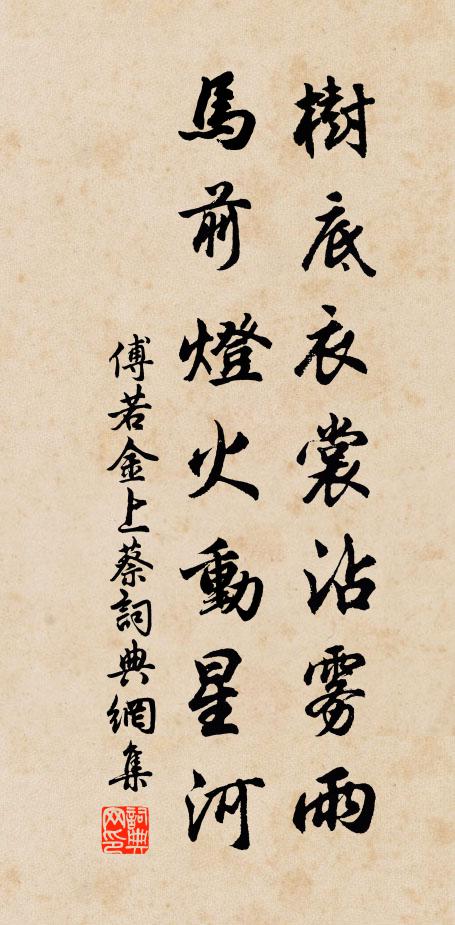 樹底衣裳沾雾雨
馬前燈火動星河
傅若金上蔡詞典網集
詞典网印